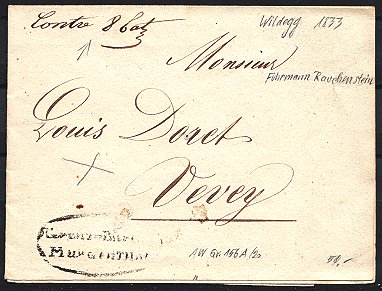 Contre 8 batz
Wildegg 1833
Monsieur
Fuhrmann Rauchenstein
Louis Doret
Vevey
Murgenthal
AW Gr. 156 A/20